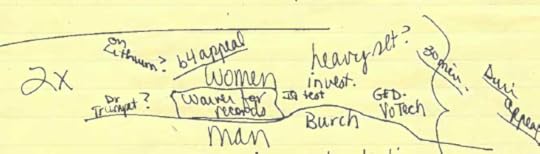 on Lithium? b4 appeal heavy set? 30 min.
2x women invest. During appeal
Dr Trumpet? Waiver for records IQ test GED- VoTech
man Burch